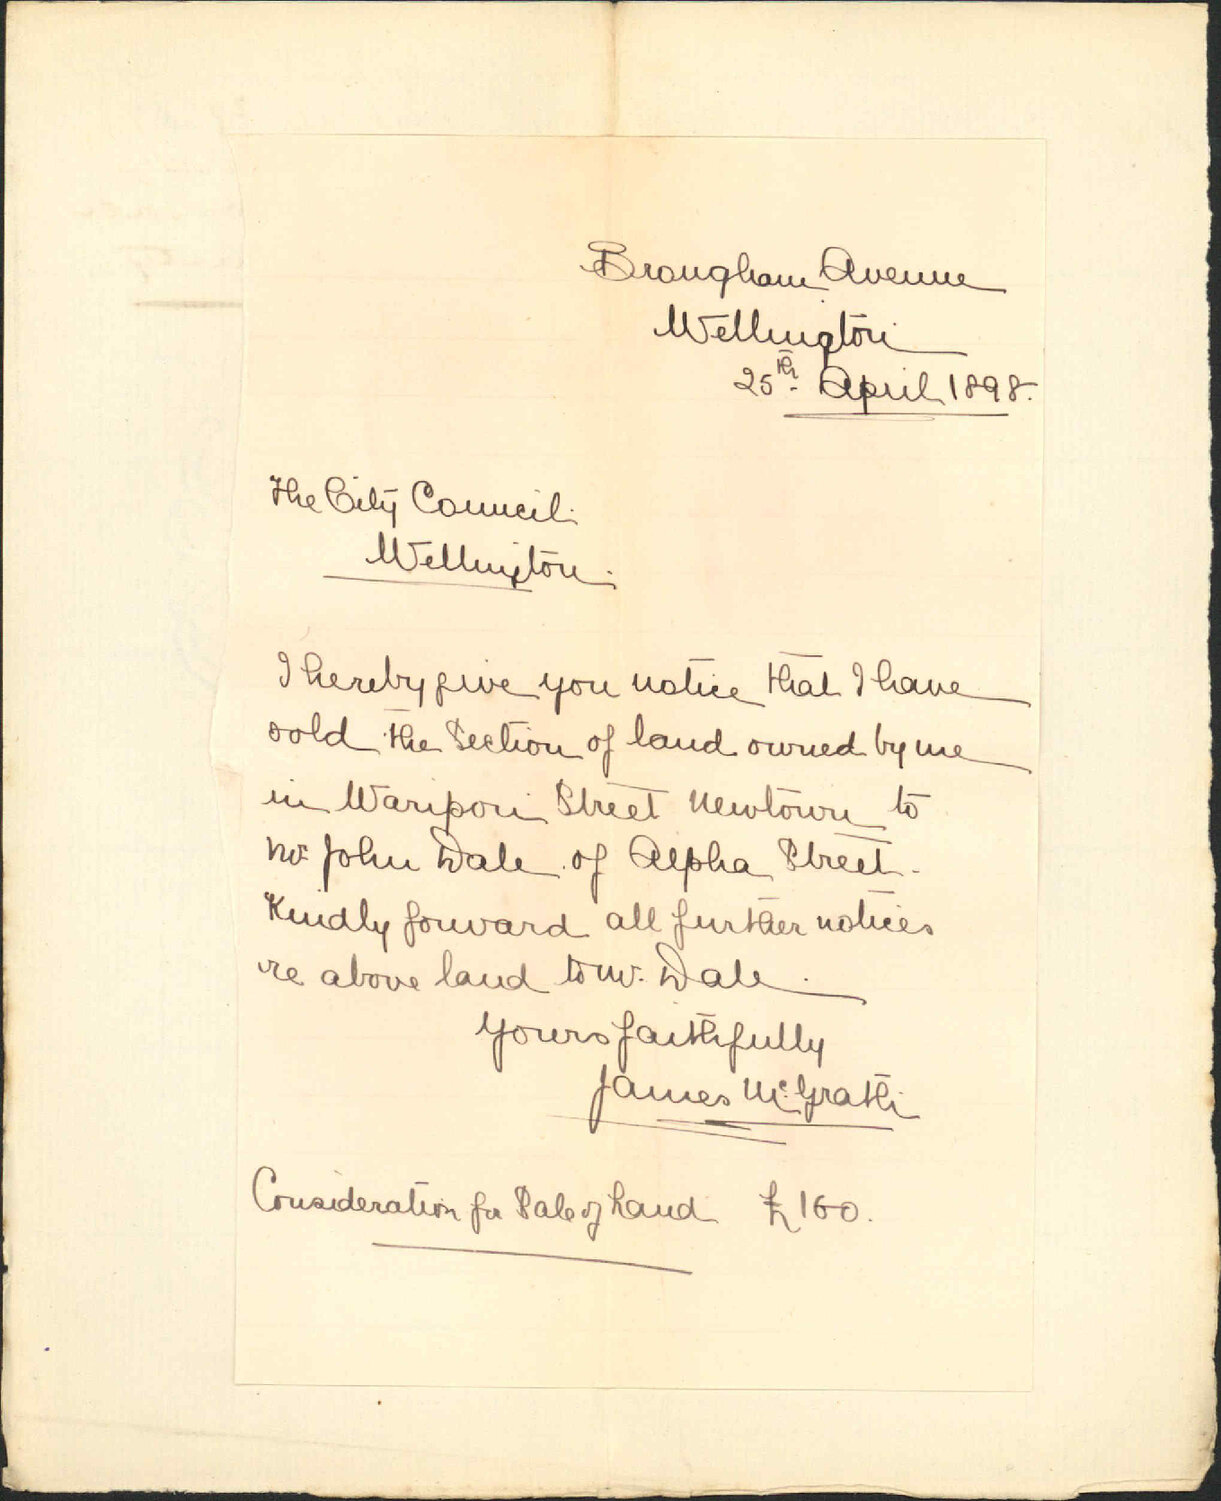 Brougham Avenue
Wellington
25th. April 1898.
The City Council.
Wellington.
I hereby give you notice that I have
sold the Section of land owned by me
in Waripori Street Newtown to
Mr John Dale of Alpha Street.
Kindly forward all further notices
re above land to Mr. Dale.
Yours faithfully
James McGrath
Consideration for Sale of Land £160.